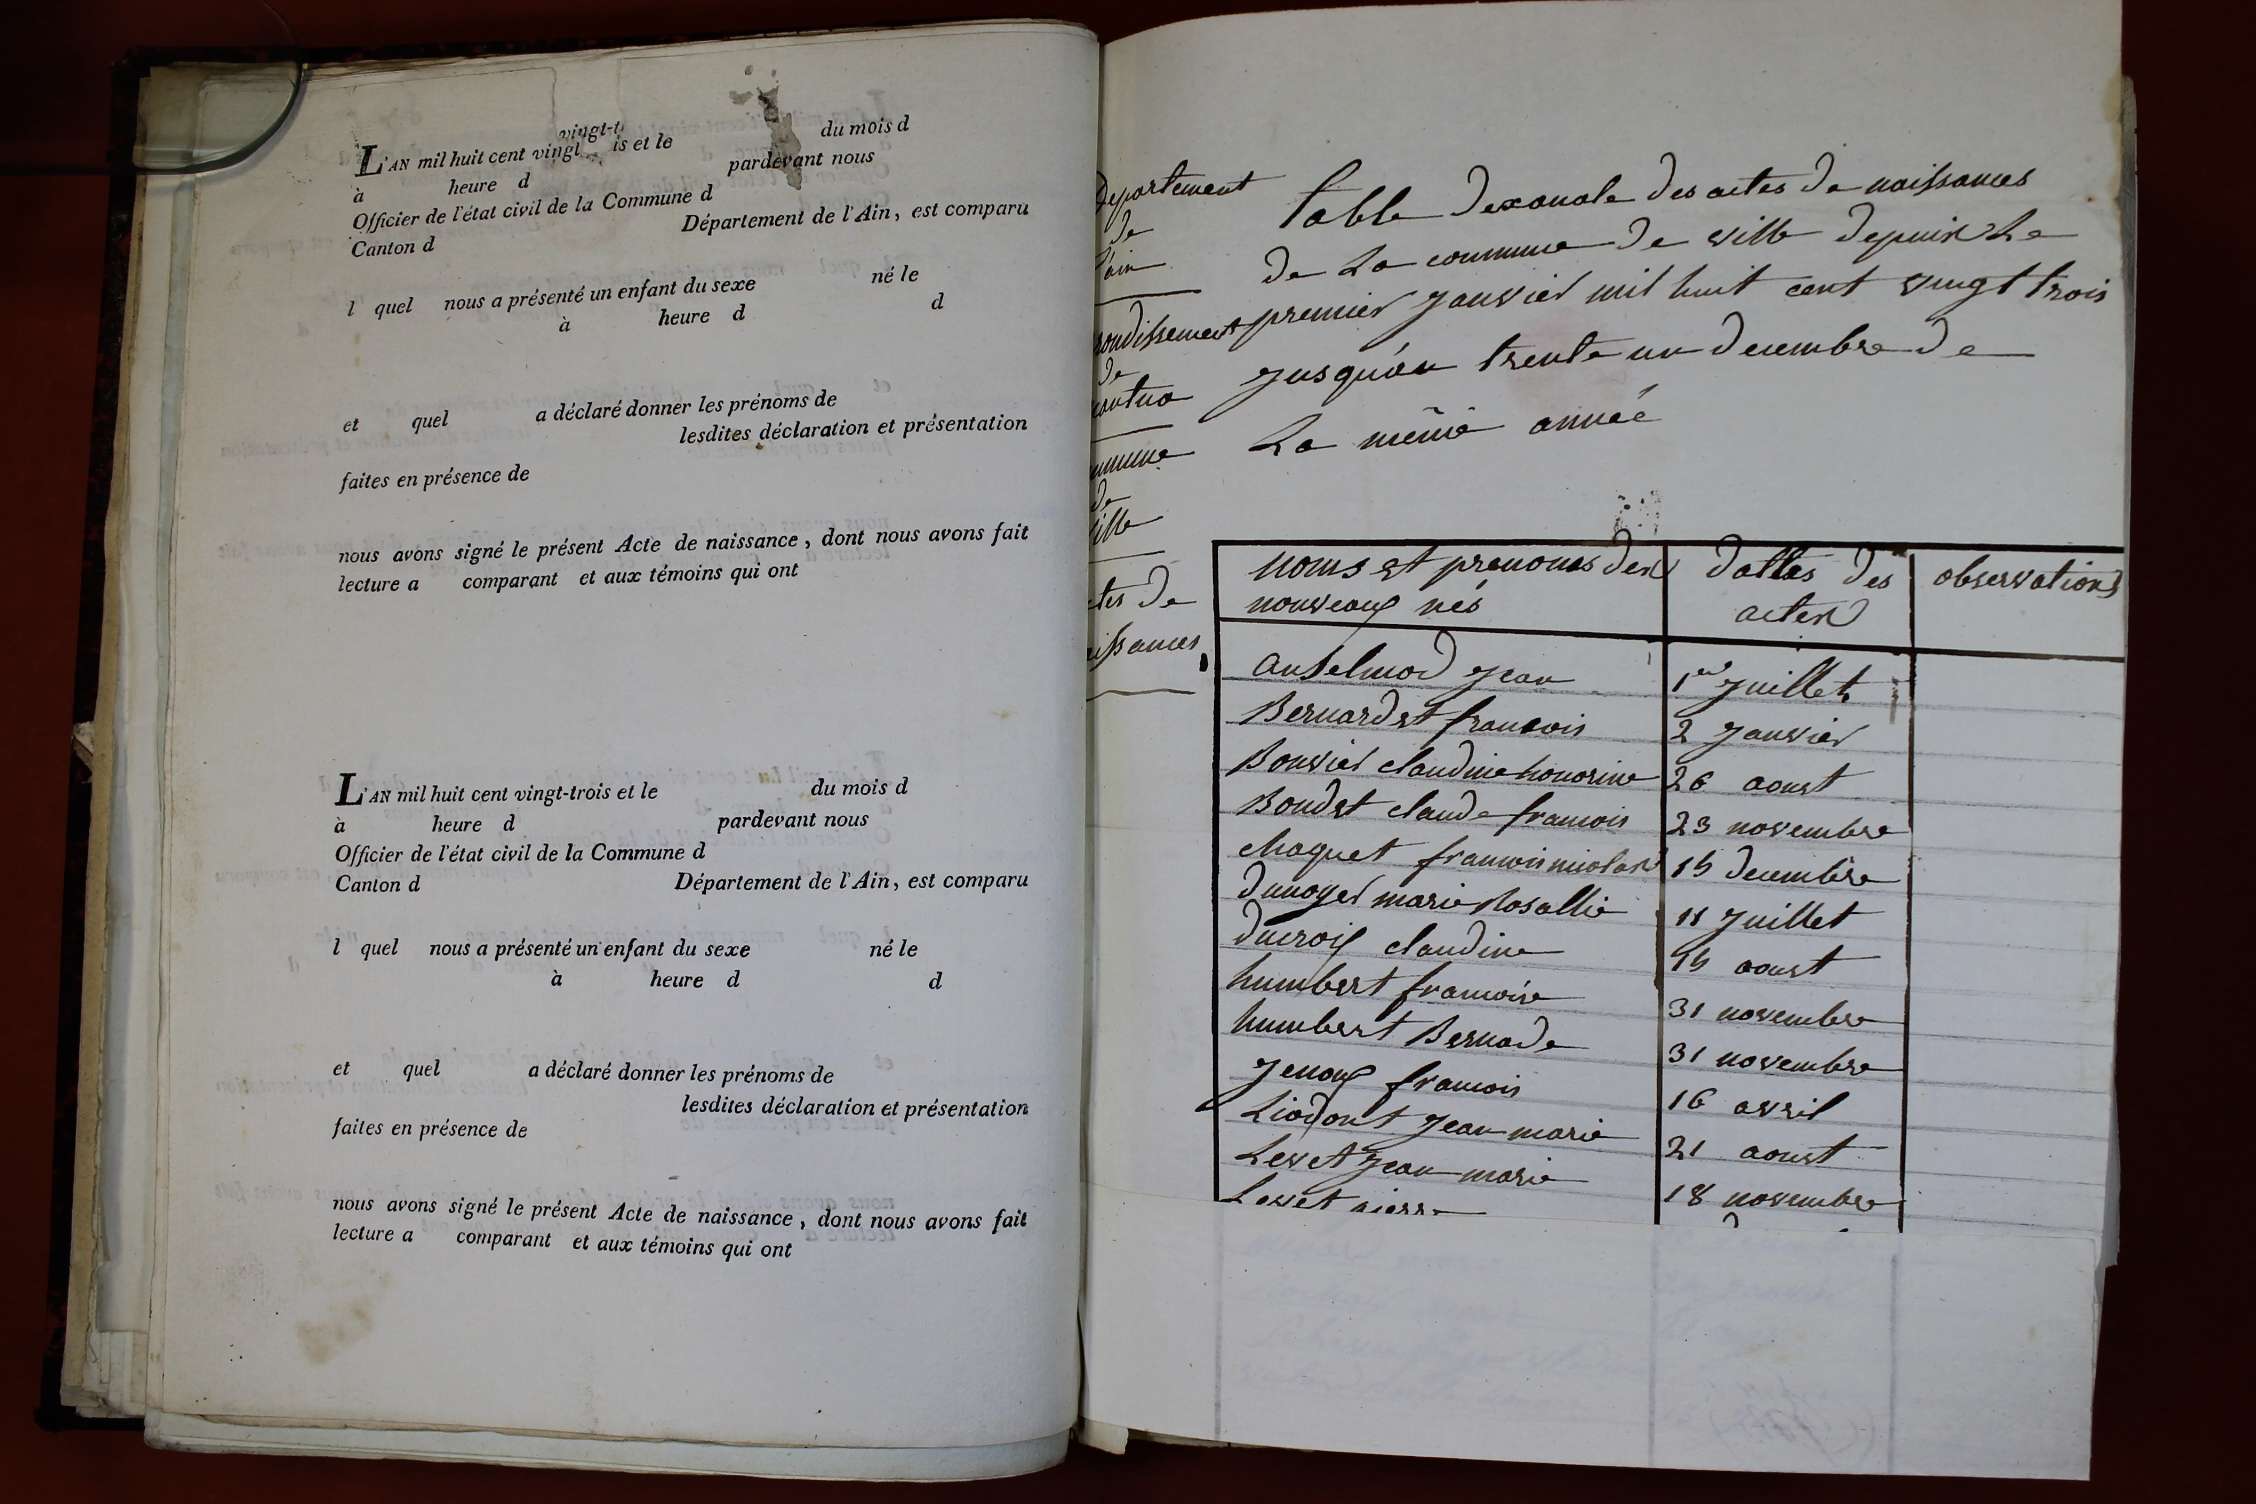 L'AN mil huit cent vingt is et le du mois d
vingt-t
à heure d pardevant nous
Officier de l'état civil de la Commune d
Canton d Département de l'Ain, est comparu
l quel nous a présenté un enfant du sexe né le
à heure d d
et quel a déclaré donner les prénoms de
lesdites déclaration et présentation
faites en présence de
nous avons signé le présent Acte de naissance, dont nous avons fait
lecture a comparant et aux témoins qui ont
L'AN mil huit cent vingt-trois et le du mois d
à heure d pardevant nous
Officier de l'état civil de la Commune d
Canton d Département de l'Ain, est comparu
l quel nous a présenté un enfant du sexe né le
à heure d d
et quel a déclaré donner les prénoms de
lesdites déclaration et présentation
faites en présence de
nous avons signé le présent Acte de naissance, dont nous avons fait
lecture a comparant et aux témoins qui ont
Departement
de
l'ain
rondissement
de
antua
mmune
de
ville
ctes de
issances
Table dexanale des actes de naissances
de La commune de ville depuis Le
premier Janvier mil huit cent vingt trois
Jusqu'au trente un decembre de
La même année
noms et prenoms des dattes des observations
nouveaux nés actes
Anselmod Jean 1er Juillet
Bernardet francois 2 Janvier
Bouvier claudine honorine 26 aoust
Boudet claude francois 23 novembre
choquet francois nicolas 15 decembre
dunoyer marie Rosallie 11 Juillet
ducroix claudine 15 aoust
humbert francoise 31 novembre
humbert Bernade 31 novembre
Jenoux francois 16 avril
Liodont Jean marie 21 aoust
Levet Jean marie 18 novembre
Levet pierre